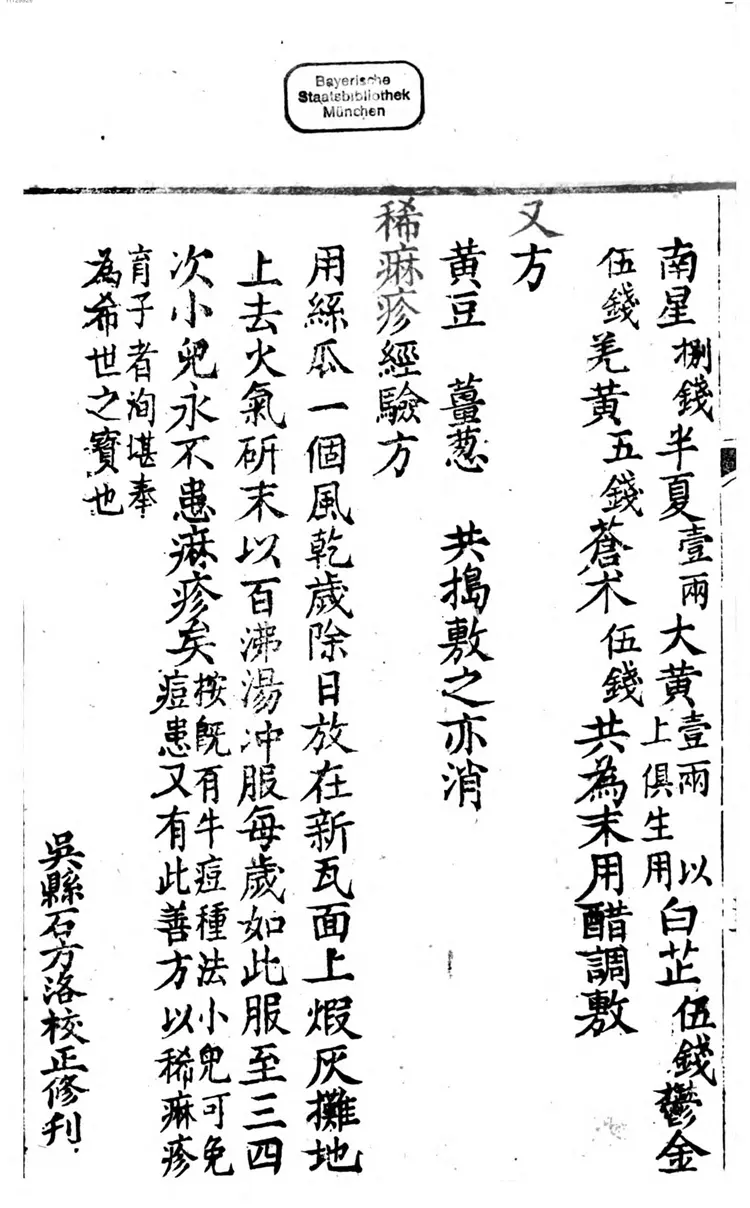 Bayerische
Staatsbibliothek
München
南星捌錢半夏壹兩大黃壹兩以上俱生用白芷伍錢鬱金
伍錢羌黃五錢蒼朮伍錢共為末用醋調敷
又方
黃豆 薑葱 共搗敷之亦消
稀痳疹經驗方
用絲瓜一個風乾歲除日放在新瓦面上煆灰攤地
上去火氣研末以百沸湯冲服每歲如此服至三四
次小兒永不患痳疹矣按既有牛痘種法小兒可免
痘患又有此善方以稀痳疹
育子者洵堪奉
為希世之寶也
吳縣石方洛校正修刊